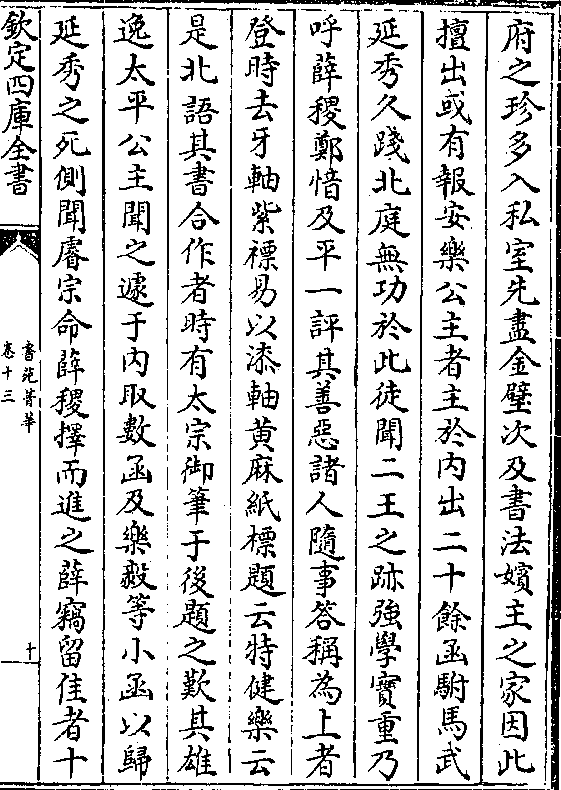 府之珍多入私室先盡金璧次及書法嬪主之家因此
擅出或有報安樂公主者主於内出二十餘函駙馬武
延秀久踐北庭無功於此徒聞二王之跡強學寳重乃
呼薛稷鄭愔及平一評其善惡諸人隨事答稱為上者
登時去牙軸紫褾易以漆軸黄麻紙標題云特健樂云
是北語其書合作者時有太宗御筆于後題之歎其雄
逸太平公主聞之遽于内取數函及樂毅等小函以歸
延秀之死側聞睿宗命薛稷擇而進之薛竊留佳者十
欽定四庫全書
書苑菁華
卷十三
十